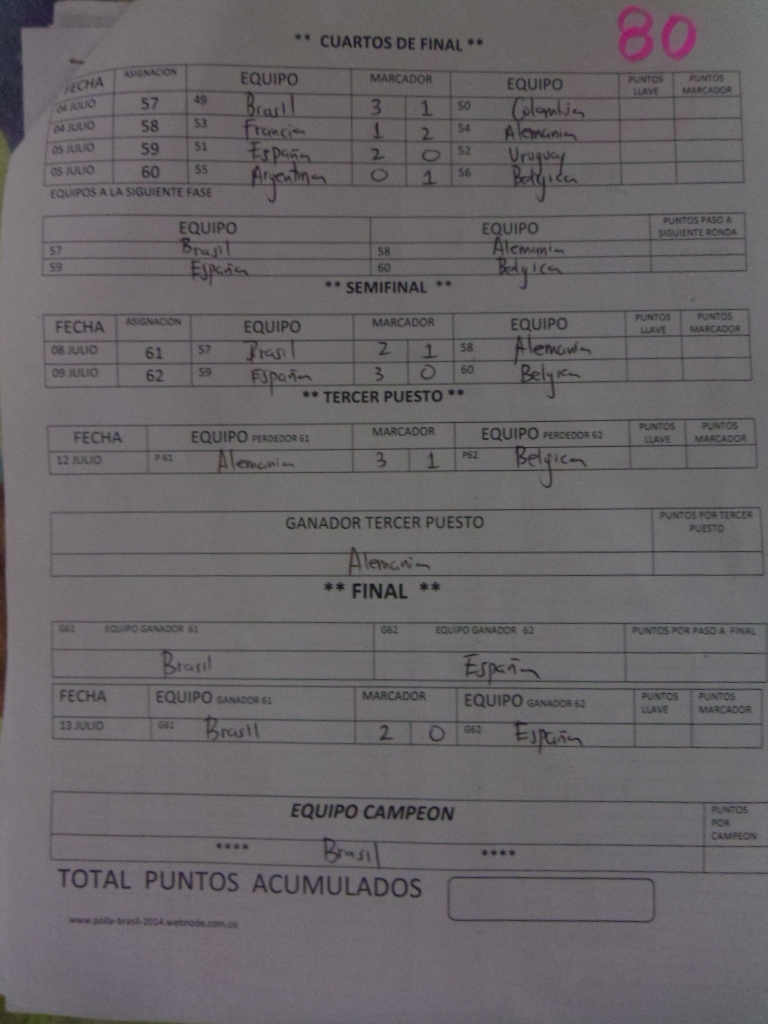 80
** CUARTOS DE FINAL **
FECHA ASIGNACION EQUIPO MARCADOR EQUIPO PUNTOS LLAVE PUNTOS MARCADOR
04 JULIO 57 49 Brasil 3 1 50 Colombia
04 JULIO 58 53 Francia 1 2 54 Alemania
05 JULIO 59 51 España 2 0 52 Uruguay
05 JULIO 60 55 Argentina 0 1 56 Belgica
EQUIPOS A LA SIGUIENTE FASE
EQUIPO EQUIPO PUNTOS PASO A SIGUIENTE RONDA
57 Brasil 58 Alemania
59 España 60 Belgica
** SEMIFINAL **
FECHA ASIGNACION EQUIPO MARCADOR EQUIPO PUNTOS LLAVE PUNTOS MARCADOR
08 JULIO 61 57 Brasil 2 1 58 Alemania
09 JULIO 62 59 España 3 0 60 Belgica
** TERCER PUESTO **
FECHA EQUIPO PERDEDOR 61 MARCADOR EQUIPO PERDEDOR 62 PUNTOS LLAVE PUNTOS MARCADOR
12 JULIO P 61 Alemania 3 1 P62 Belgica
GANADOR TERCER PUESTO PUNTOS POR TERCER PUESTO
Alemania
** FINAL **
G61 EQUIPO GANADOR 61 G62 EQUIPO GANADOR 62 PUNTOS POR PASO A FINAL
Brasil España
FECHA EQUIPO GANADOR 61 MARCADOR EQUIPO GANADOR 62 PUNTOS LLAVE PUNTOS MARCADOR
13 JULIO G61 Brasil 2 0 G62 España
EQUIPO CAMPEON PUNTOS POR CAMPEON
**** Brasil ****
TOTAL PUNTOS ACUMULADOS
www.polla-brasil-2014.webnode.com.co